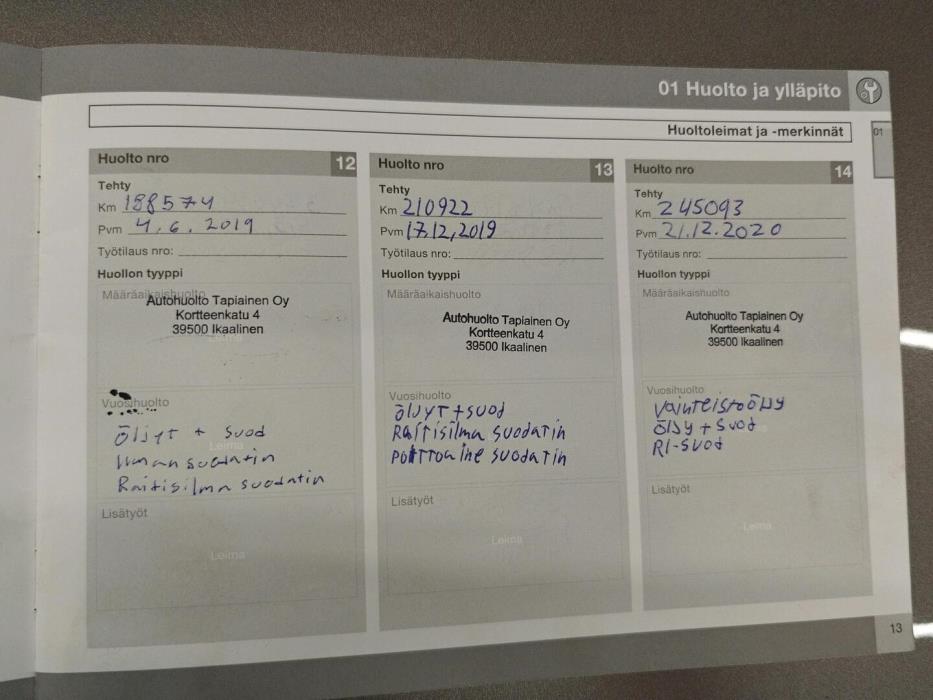 01 Huolto ja ylläpito
Huoltoleimat ja -merkinnät
01
Huolto nro 12
Tehty
Km 188574
Pvm 4.6.2019
Työtilaus nro:
Huollon tyyppi
Määräaikaishuolto
Autohuolto Tapiainen Oy
Kortteenkatu 4
39500 Ikaalinen
Leima
Vuosihuolto
öljyt + suod
Leima
ilman suodatin
Raitisilma suodatin
Lisätyöt
Leima
Huolto nro 13
Tehty
Km 210922
Pvm 17.12,2019
Työtilaus nro:
Huollon tyyppi
Määräaikaishuolto
Autohuolto Tapiainen Oy
Kortteenkatu 4
39500 Ikaalinen
Vuosihuolto
ÖLJYT + SUOD
RAITISILMA SUODATIN
POLTTOAINE SUODATIN
Lisätyöt
Leima
Huolto nro 14
Tehty
Km 245093
Pvm 21.12.2020
Työtilaus nro:
Huollon tyyppi
Määräaikaishuolto
Autohuolto Tapiainen Oy
Kortteenkatu 4
39500 Ikaalinen
Vuosihuolto
VAIHTEISTOÖLJY
ÖLJY + SUOD
RI-SUOD
Lisätyöt
Leima
13